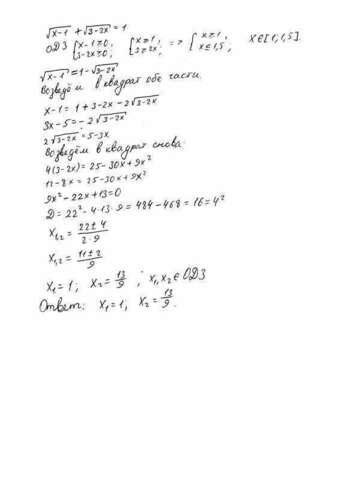 √x-1 + √3-2x = 1
ОДЗ { x-1≥0, 3-2x≥0; { x≥1, 3≥2x; => { x≥1, x≤1,5; x∈[1;1,5].
√x-1 = 1-√3-2x
Возведём в квадрат обе части.
x-1 = 1+3-2x-2√3-2x
3x-5 = -2√3-2x
2√3-2x = 5-3x
Возведём в квадрат снова:
4(3-2x) = 25-30x+9x²
12-8x = 25-30x+9x²
9x²-22x+13=0
D = 22²-4·13·9 = 484-468 = 16 = 4²
x₁,₂ = 22±4 / 2·9
x₁,₂ = 11±2 / 9
x₁ = 1; x₂ = 13/9; x₁, x₂ ∈ ОДЗ
Ответ: x₁ = 1; x₂ = 13/9.